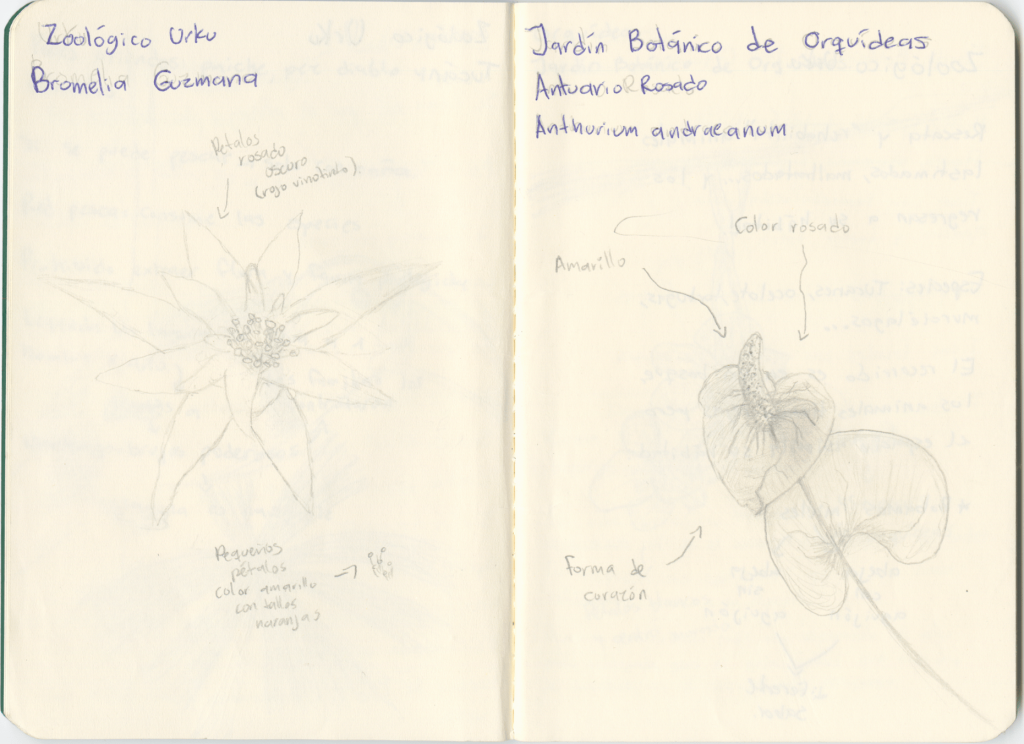 Zoológico Urku
Bromelia Guzmania
Pétalos
rosado
oscuro
(rojo vinotinto)
Pequeños
pétalos
color amarillo
con tallos
naranjas
Jardín Botánico de Orquídeas
Antuario Rosado
Anthurium andraeanum
Color rosado
Amarillo
Forma de
corazón